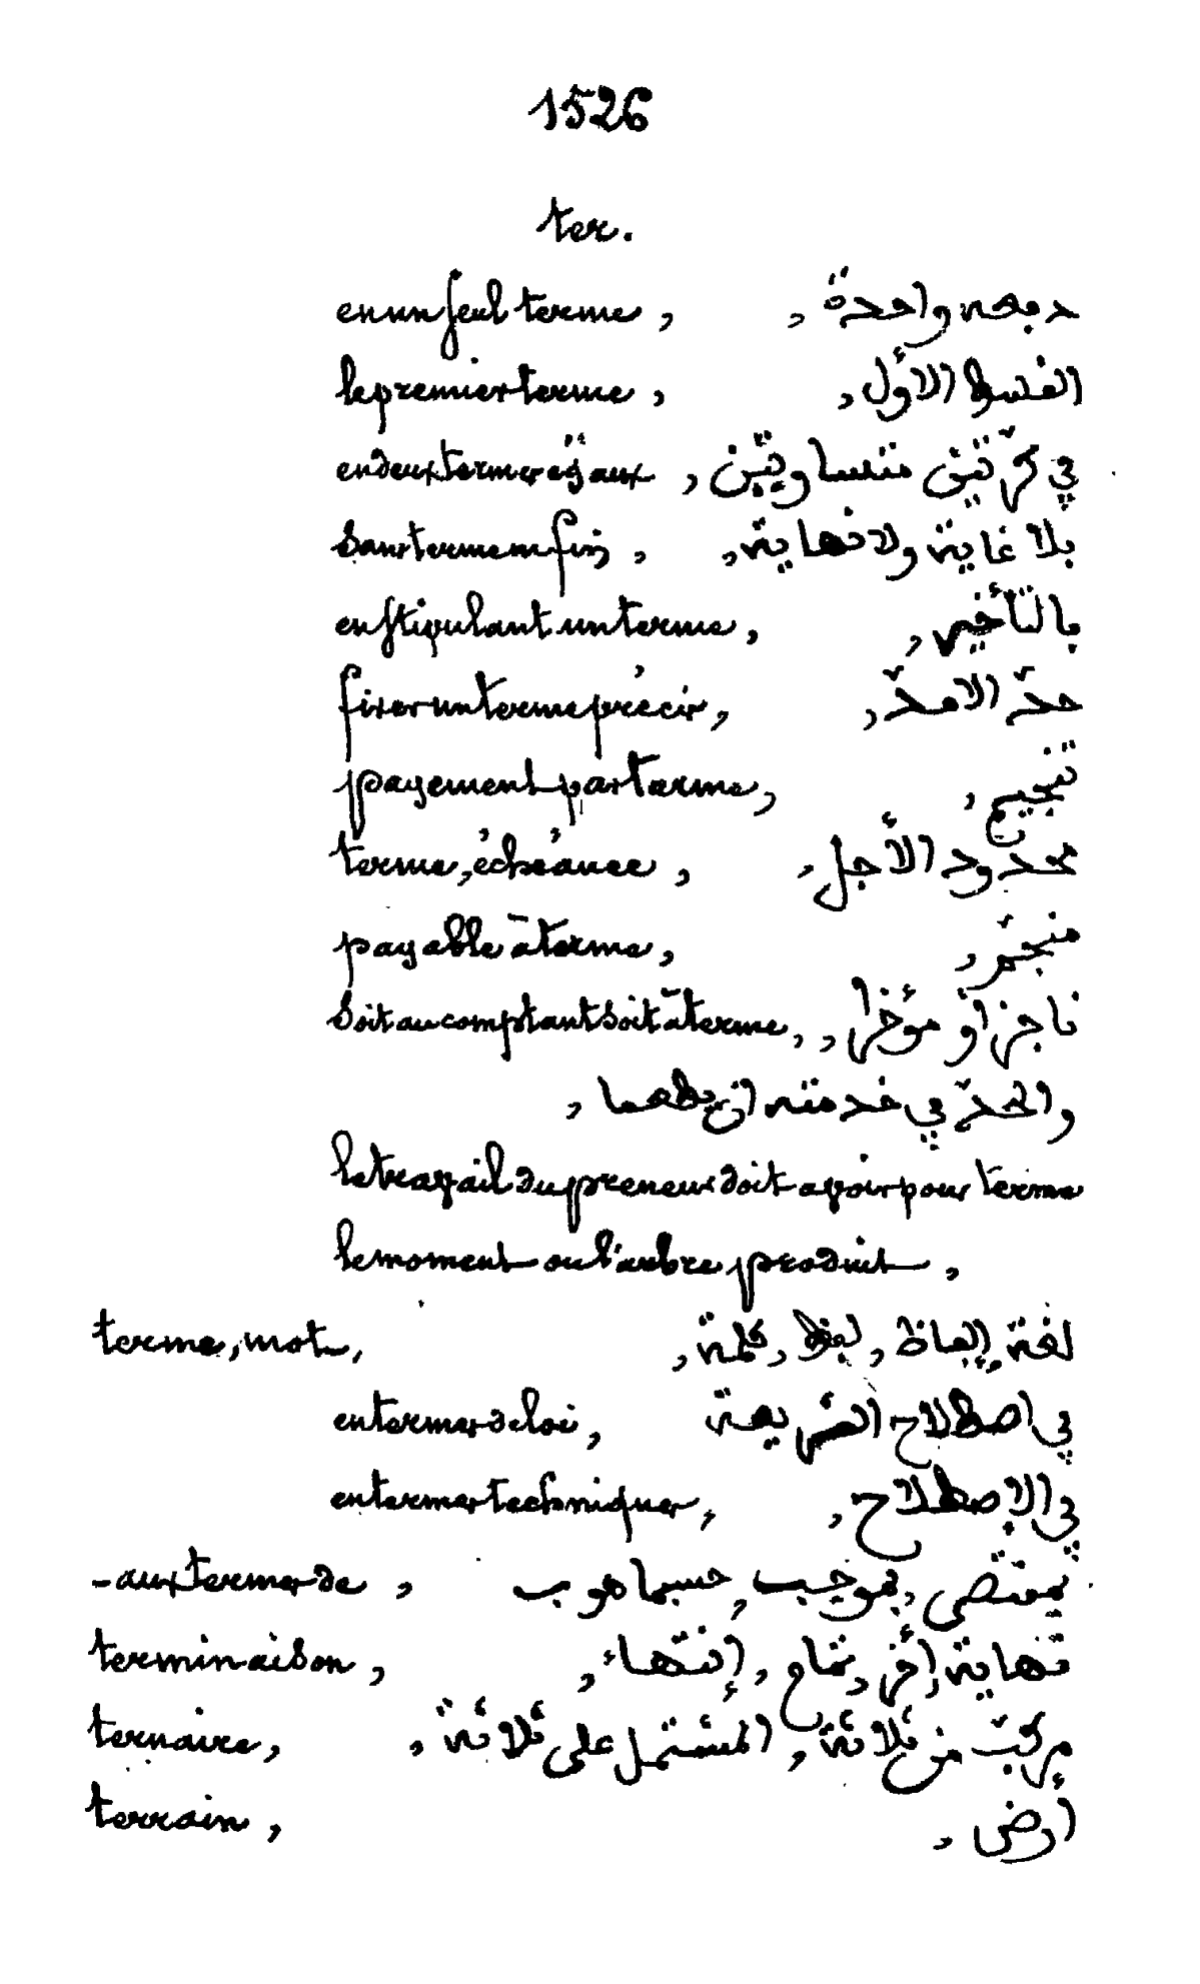 1526
ter.
en un seul terme, دفعة واحدة,
le premier terme, القسط الأول,
en deux termes égaux, في كرّتين متساويتين,
sans terme ni fin, بلا غاية ولا نهاية,
en stipulant un terme, بالتأخير,
fixer un terme précis, حدّ الامدّ,
payement par terme, تنجيم,
terme, échéance, محدود الأجل,
payable à terme, منجّم,
soit au comptant soit à terme, ناجزا أو مؤخرا,
والحدّ في خدمته
le travail du preneur doit avoir pour terme
le moment ou l'arbre produit,
terme, mot, لغة, الفاظ, لفظ, كلمة,
en termes de loi, في اصطلاح الشريعة
en termes techniques, في الإصطلاح,
- aux termes de, بمقتضى, بموجب, حسبما هو ب
terminaison, نهاية, أخر, تمام, إنتهاء,
ternaire, مركّب من ثلاثة, المشتمل على ثلاثة,
terrain, ارض,